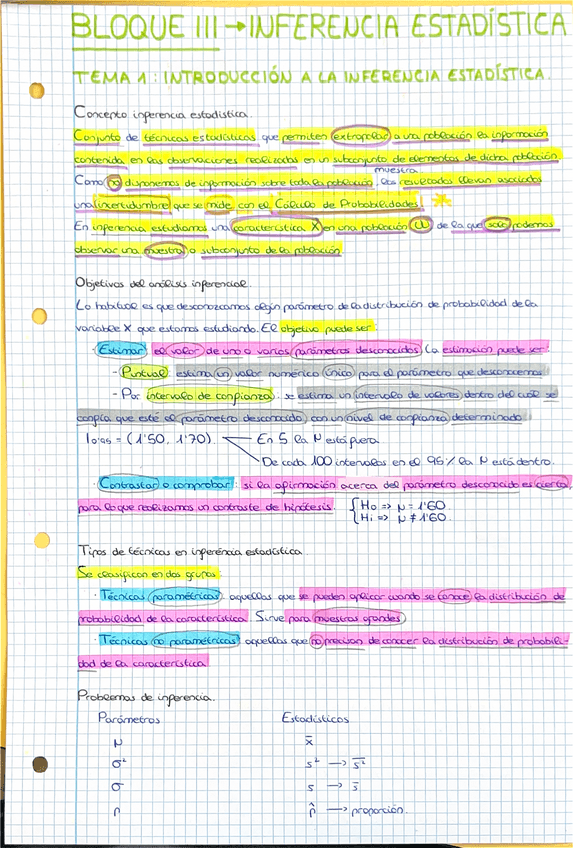 BLOQUE III → INFERENCIA ESTADÍSTICA
TEMA 1: INTRODUCCIÓN A LA INFERENCIA ESTADÍSTICA.
Concepto inferencia estadística.
Conjunto de técnicas estadísticas que permiten extrapolar a una población la información
contenida en las observaciones realizadas en un subconjunto de elementos de dicha población
muestra
Como no disponemos de información sobre toda la población, los resultados llevan asociados
una incertidumbre que se mide con el Cálculo de Probabilidades.
En inferencia estudiamos una característica X en una población (U) de la que solo podemos
observar una muestra o subconjunto de la población
Objetivos del análisis inferencial.
Lo habitual es que desconozcamos algún parámetro de la distribución de probabilidad de la
variable X que estamos estudiando. El objetivo puede ser:
· Estimar el valor de uno o varios parámetros desconocidos. La estimación puede ser:
- Puntual: estima un valor numérico único para el parámetro que desconocemos
- Por intervalo de confianza: se estima un intervalo de valores dentro del cual se
confía que esté el parámetro desconocido con un nivel de confianza determinado
I0'95 = (1'50, 1'70) En 5 la μ está fuera.
De cada 100 intervalos en el 95% la μ está dentro.
· Contrastar o comprobar: si la afirmación acerca del parámetro desconocido es cierta,
para lo que realizamos un contraste de hipótesis. { H0 => μ = 1'60
H1 => μ ≠ 1'60.
Tipos de técnicas en inferencia estadística.
Se clasifican en dos grupos:
· Técnicas paramétricas: aquellas que se pueden aplicar cuando se conoce la distribución de
probabilidad de la característica. Sirve para muestras grandes
· Técnicas no paramétricas: aquellas que no precisan de conocer la distribución de probabili-
dad de la característica
Problemas de inferencia.
Parámetros Estadísticos
μ x̄
σ² s² → s̄²
σ s → s̄
p p̂ → proporción.